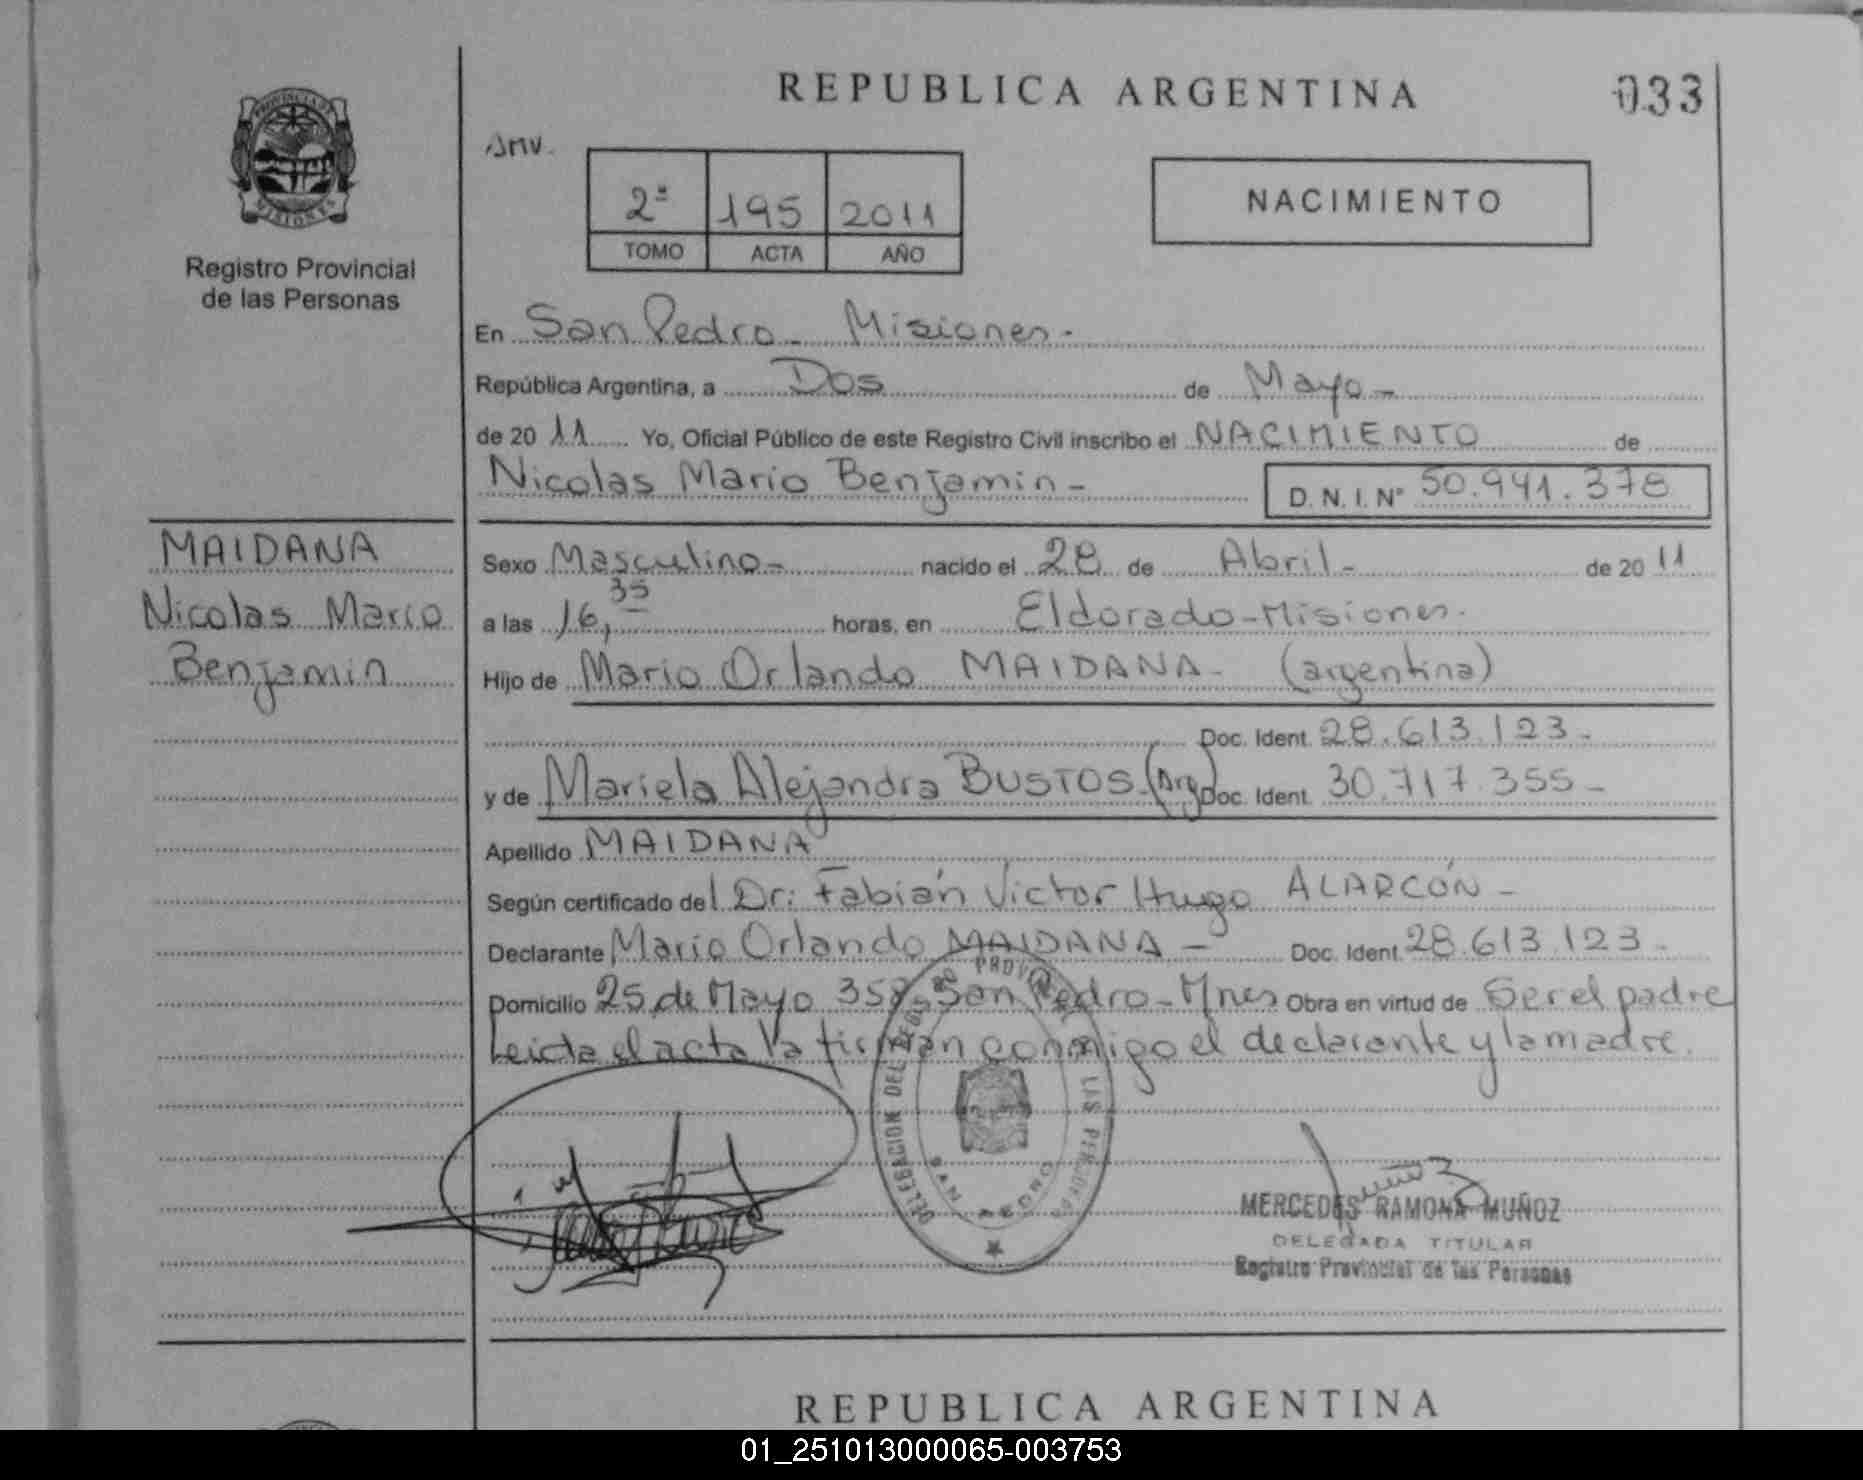 REPUBLICA ARGENTINA
033
PROVINCIA DE
MISIONES
Registro Provincial
de las Personas
2ª 195 2011
TOMO ACTA AÑO
NACIMIENTO
En San Pedro - Misiones -
República Argentina, a Dos de Mayo -
de 2011 Yo, Oficial Público de este Registro Civil inscribo el NACIMIENTO de
Nicolas Mario Benjamin -
D. N. I. N° 50.941.378
MAIDANA
Nicolas Mario
Benjamin
Sexo Masculino - nacido el 28 de Abril - de 2011
a las 16,35 horas, en Eldorado - Misiones.
Hijo de Mario Orlando MAIDANA - (argentina)
Doc. Ident. 28.613.123 -
y de Mariela Alejandra BUSTOS - (Arg) Doc. Ident. 30.717.355 -
Apellido MAIDANA
Según certificado del Dr: Fabián Victor Hugo ALARCÓN -
Declarante Mario Orlando MAIDANA - Doc. Ident. 28.613.123 -
Domicilio 25 de Mayo 358 San Pedro - Mnes Obra en virtud de Ser el padre
Leida el acta la firman conmigo el declarante y la madre.
DELEGACION DEL REGISTRO PROVINCIAL DE LAS PERSONAS
SAN PEDRO
MERCEDES RAMONA MUÑOZ
DELEGADA TITULAR
Registro Provincial de las Personas
REPUBLICA ARGENTINA
01_251013000065-003753